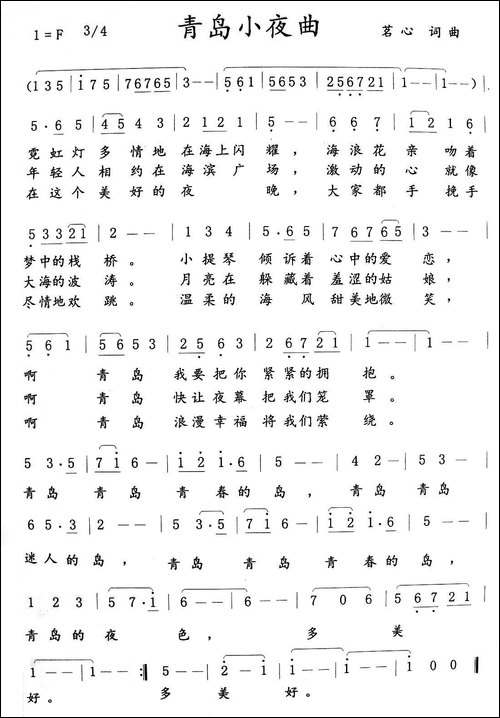 1=F 3/4 青岛小夜曲 茗心 词曲
(1 3 5 | i 7 5 | 76765 | 3 — — | 561 | 5653 | 256721 | 1 — — | 1 — — ) |
5·65 | 4543 | 2121 | 5 — — | 567 | 1216 |
霓虹灯多情地在海上闪耀，海浪花亲吻着
年轻人相约在海滨广场，激动的心就像
在这个美好的夜晚，大家都手挽手
53321 | 2 — — | 134 | 5·65 | 76765 | 3 — — |
梦中的栈桥。小提琴倾诉着心中的爱恋，
大海的波涛。月亮在躲藏着羞涩的姑娘，
尽情地欢跳。温柔的海风甜美地微笑，
561 | 5653 | 2563 | 26721 | 1 — — | 1 — — |
啊青岛我要把你紧紧的拥抱。
啊青岛快让夜幕把我们笼罩。
啊青岛浪漫幸福将我们萦绕。
53·5 | 7i6 — | i2i·6 | 5 — — | 42 — | 53 — |
青岛青岛青春的岛，青岛青岛
65·3 | 2 — — | 53·5 | 7i6 — | i2i·6 | 5 — — |
迷人的岛，青岛青岛青春的岛，
123 | 57·i | 6 — — | 6 — — | 706 | 56721 |
青岛的夜色，多美
1 — — | 1 — — :‖ 5 — — | 2 — i | i — — | i — — | i00 ‖
好。多美好。